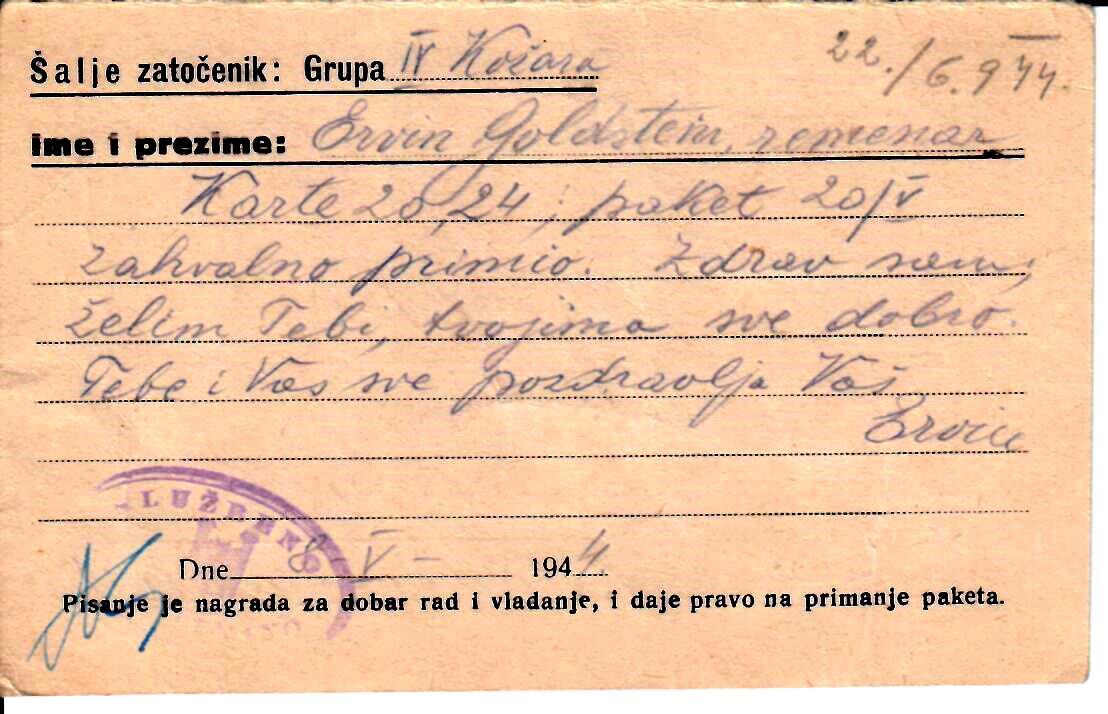 Šalje zatočenik: Grupa IV Kožara
22./6.944.
ime i prezime: Ervin Goldstein, remenar
Karte 20, 24, i paket 20/V
zahvalno primio. Zdrav sam,
želim Tebi, tvojima sve dobro.
Tebe i Vas sve pozdravlja Vaš
Ervin
LUŽBENO
Dne 8-V- 1944.
Pisanje je nagrada za dobar rad i vladanje, i daje pravo na primanje paketa.